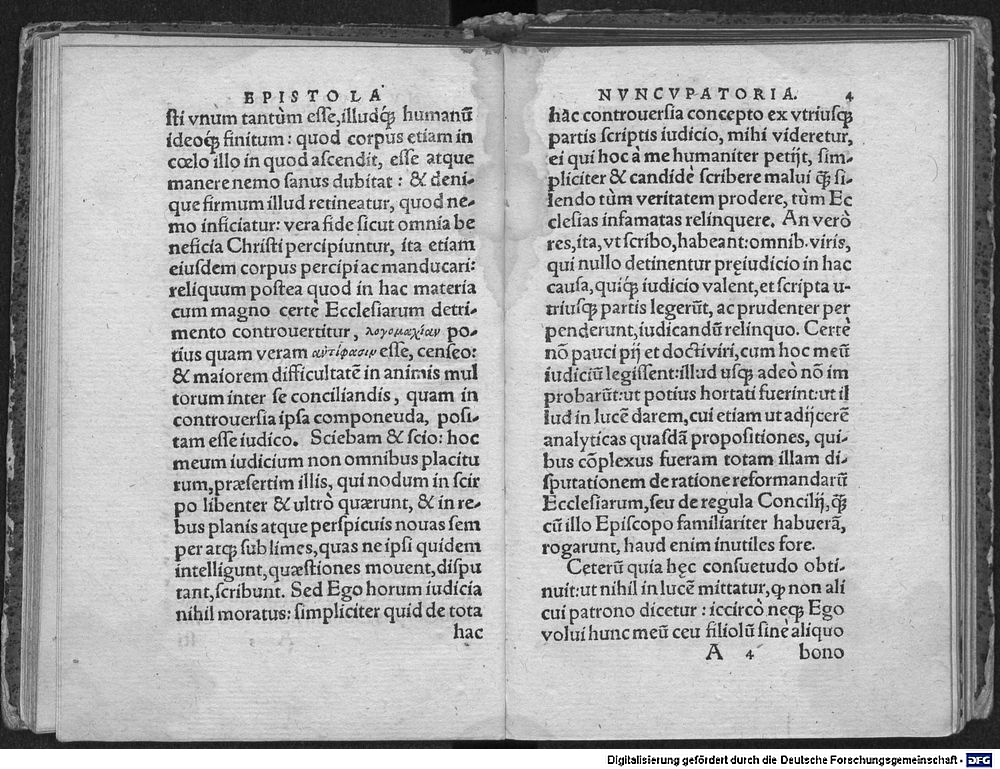 EPISTOLA
sti vnum tantùm esse, illudq́ꝫ humanũ
ideoq́ꝫ finitum: quod corpus etiam in
cœlo illo in quod ascendit, esse atque
manere nemo sanus dubitat: & deni-
que firmum illud retineatur, quod ne-
mo inficiatur: vera fide sicut omnia be
neficia Christi percipiuntur, ita etiam
eiusdem corpus percipi ac manducari:
reliquum postea quod in hac materia
cum magno certè Ecclesiarum detri-
mento controuertitur, λογομαχίαν po-
tius quam veram ἀντίφασιν esse, censeo:
& maiorem difficultatẽ in animis mul
torum inter se conciliandis, quam in
controuersia ipsa componeuda, posi-
tam esse iudico. Sciebam & scio: hoc
meum iudicium non omnibus placitu
rum, præsertim illis, qui nodum in scir
po libenter & ultrò quærunt, & in re-
bus planis atque perspicuis nouas sem
per atq́ꝫ sublimes, quas ne ipsi quidem
intelligunt, quæstiones mouent, dispu
tant, scribunt. Sed Ego horum iudicia
nihil moratus: simpliciter quid de tota
hac
NVNCVPATORIA. 4
hac controuersia concepto ex vtriusq́ꝫ
partis scriptis iudicio, mihi videretur,
ei qui hoc à me humaniter petijt, sim-
pliciter & candidè scribere malui q̃ꝫ si-
lendo tùm veritatem prodere, tùm Ec
clesias infamatas relinquere. An verò
res, ita, vt scribo, habeant: omnib. viris,
qui nullo detinentur pręiudicio in hac
causa, quiq́ꝫ iudicio valent, et scripta u-
triusq́ꝫ partis legerũt, ac prudenter per
penderunt, iudicandũ relinquo. Certè
nõ pauci pij et docti viri, cum hoc meũ
iudiciũ legissent: illud usq́ꝫ adeò nõ im
probarũt: ut potius hortati fuerint: ut il
lud in lucẽ darem, cui etiam ut adijcerẽ
analyticas quasdã propositiones, qui-
bus cõplexus fueram totam illam di-
sputationem de ratione reformandarũ
Ecclesiarum, seu de regula Concilij, q̃ꝫ
cũ illo Episcopo familiariter habuerã,
rogarunt, haud enim inutiles fore.
Ceterũ quia hęc consuetudo obti-
nuit: ut nihil in lucẽ mittatur, ꝙ non ali
cui patrono dicetur: iccircò neq́ꝫ Ego
volui hunc meũ ceu filiolũ sinè aliquo
A 4 bono
Digitalisierung gefördert durch die Deutsche Forschungsgemeinschaft - DFG